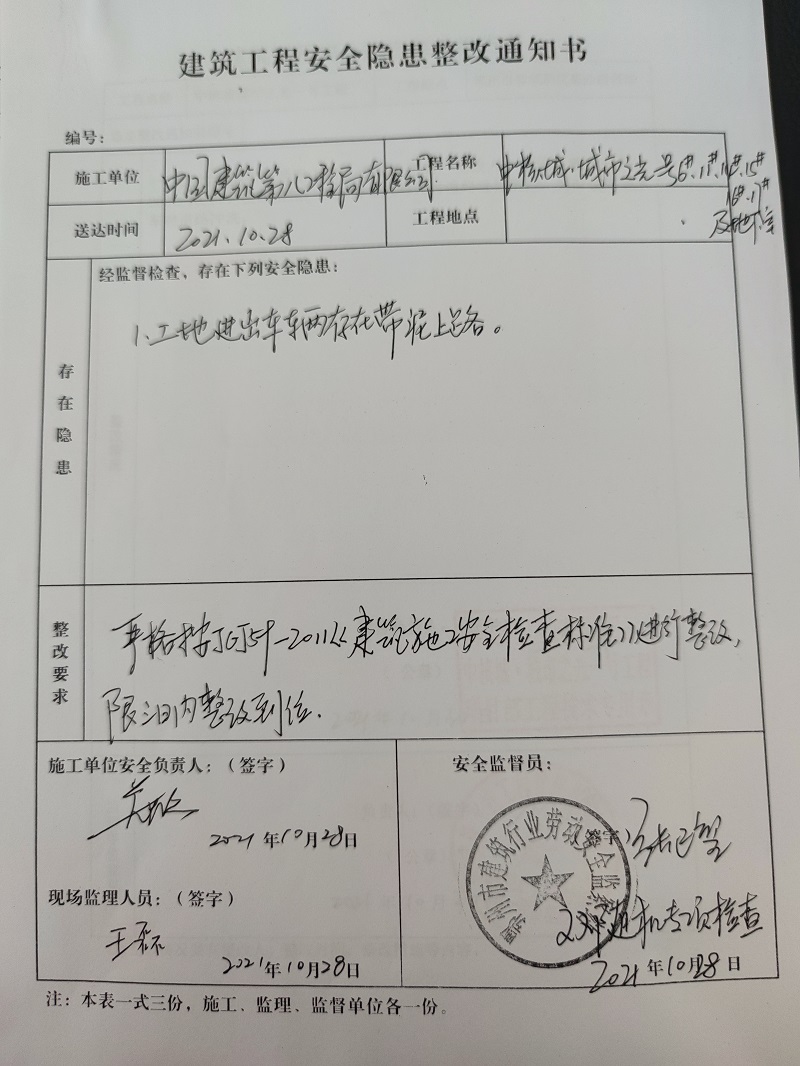 建筑工程安全隐患整改通知书
编号：
施工单位 中国建筑第八工程局有限公司 工程名称 中核城·城市之光一号6#.11#.14#.15#
16#.17#
及地下室
送达时间 2021.10.28 工程地点
存在隐患
经监督检查、存在下列安全隐患：
1.工地进出车车辆存在带泥上路。
整改要求
严格按JGJ59-2011《建筑施工安全检查标准》进行整改，
限三日内整改到位.
施工单位安全负责人：（签字） 安全监督员：
2021年10月28日
鄂州市建筑行业劳动安全监察站
现场监理人员：（签字）
专项检查
王磊
2021年10月28日
2021年10月28日
注：本表一式三份，施工、监理、监督单位各一份。